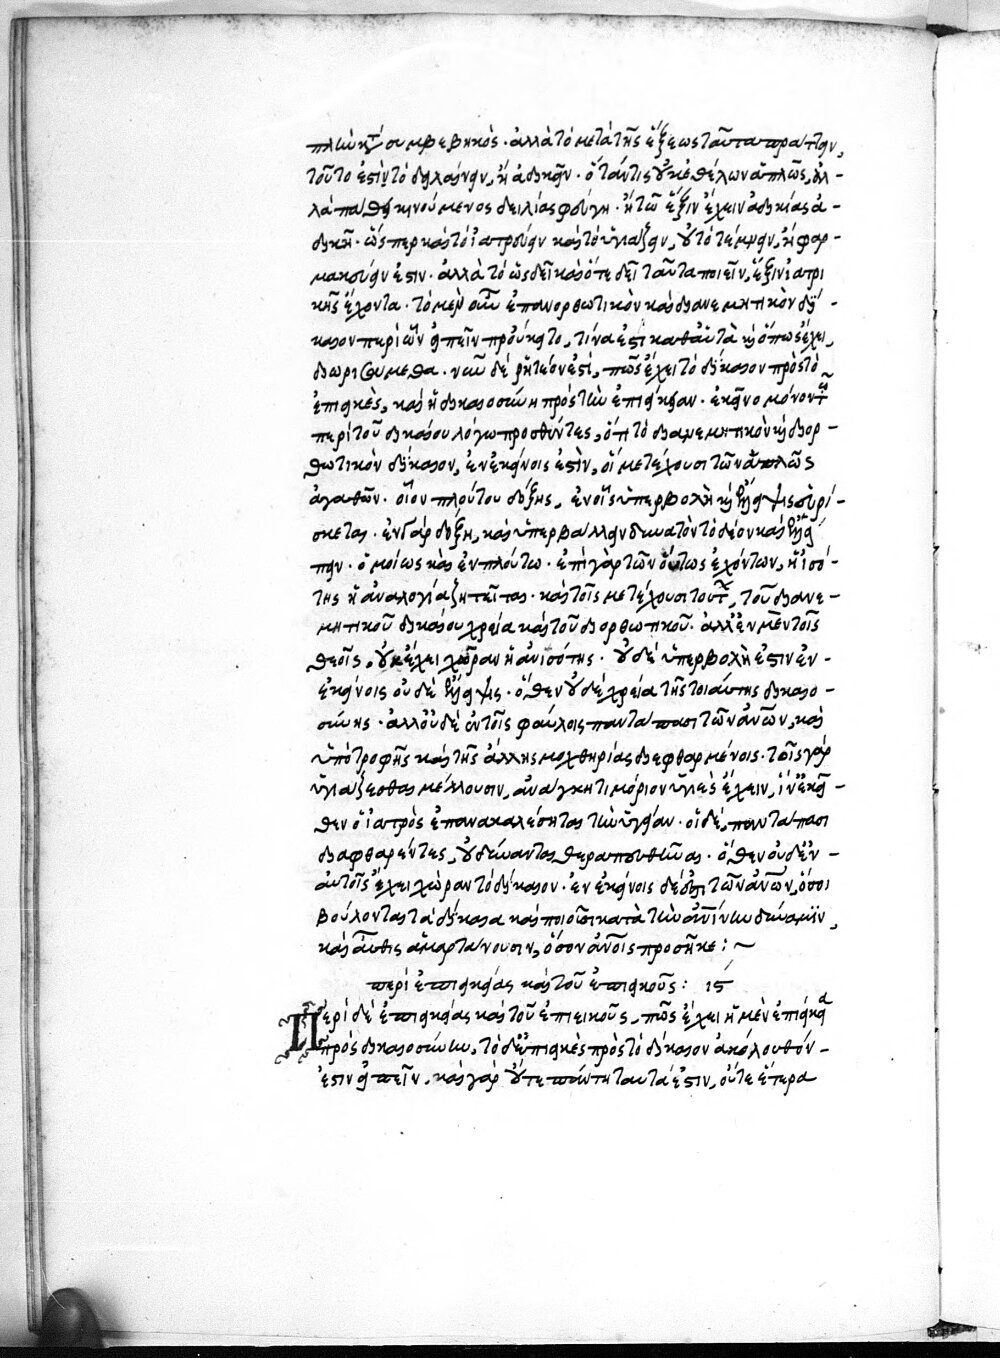 πλὴν κατὰ συμβεβηκός· ἀλλὰ τὸ μετὰ τῆς ἕξεως ταῦτα πράττειν,
τοῦτο ἐστὶ τὸ δειλαίνειν, ἢ ἀδικεῖν· ὅταν τις οὐκ ἐθέλων ἁπλῶς, ἀλ-
λὰ πάθει κινούμενος δειλίας φύγη· ἢ τῶ ἕξιν ἔχειν ἀδικίας ἀ-
δικῆ· ὥσπερ καὶ τὸ ἰατρεύειν καὶ τὸ ὑγιάζειν, οὐ τὸ τέμνειν, ἢ φαρ-
μακεύειν ἐστίν· ἀλλὰ τὸ ὡς δεῖ καὶ ὅτε δεῖ ταῦτα ποιεῖν, ἕξιν ἰατρι
κῆς ἔχοντα· τὸ μὲν οὖν ἐπανορθωτικὸν καὶ διανεμητικὸν δί-
καιον περὶ ὧν εἰπεῖν προὔκειτο, τίνα ἐστὶ καθ' αὑτὰ καὶ ὅπως ἔχει,
διωρισάμεθα· νῦν δὲ ῥητέον ἐστί, πῶς ἔχει τὸ δίκαιον πρὸς τὸ
ἐπιεικὲς, καὶ ἡ δικαιοσύνη πρὸς τὴν ἐπιείκειαν· ἐκεῖνο μόνον
περὶ τοῦ δικαίου λόγω προσθέντες, ὅτι τὸ διανεμητικὸν καὶ διορ-
θωτικὸν δίκαιον, ἐν ἐκείνοις ἐστὶν, οἳ μετέχουσι τῶν ἁπλῶς
ἀγαθῶν· οἷον πλούτου δόξης, ἐν οἷς ὑπερβολὴ καὶ ἔλλειψις εὑρί-
σκεται· ἐν γὰρ δόξη, καὶ ὑπερβάλλειν δυνατὸν τὸ δέον καὶ ἐλλεί
πειν· ὁμοίως καὶ ἐν πλούτω· ἐπὶ γὰρ τῶν οὕτως ἐχόντων, ἡ ἰσό-
της ἢ ἀναλογία ζητεῖται· καὶ τοῖς μετέχουσι τούτων, τοῦ διανε-
μητικοῦ δικαίου χρεία καὶ τοῦ διορθωτικοῦ· ἀλλ' ἐν μὲν τοῖς
θεοῖς, οὐκ ἔχει χώραν ἡ ἀνισότης· οὐδὲ ὑπερβολὴ ἐστιν ἐν-
ἐκείνοις οὐδὲ ἔλλειψις· ὅθεν οὐδὲ χρεία τῆς τοιαύτης δικαιο-
σύνης· ἀλλ' οὐδὲ ἐν τοῖς φαύλοις παντάπασι τῶν ἀνθρώπων, καὶ
ὑπὸ τροφῆς καὶ τῆς ἄλλης μοχθηρίας διεφθαρμένοις· τοῖς γὰρ
ὑγιάζεσθαι μέλλουσιν, ἀνάγκη τι μόριον ὑγιὲς ἔχειν, ἵν' ἐκεῖ-
θεν ὁ ἰατρὸς ἐπανακαλέσηται τὴν ὑγείαν· οἱ δὲ, παντάπασι
διαφθαρέντες, οὐ δύνανται θεραπευθῆναι· ὅθεν οὐδὲν-
αὐτοῖς ἔχει χώραν τὸ δίκαιον· ἐν ἐκείνοις δέ ἐστι τῶν ἀνθρώπων, ὅσοι
βούλονται τὰ δίκαια καὶ ποιοῦσι κατὰ τὴν ἀνθρωπίνην δύναμιν,
καὶ αὖθις ἁμαρτάνουσιν, ὅσον ἀνθρώποις προσῆκε:~
περὶ ἐπιεικείας καὶ τοῦ ἐπιεικοῦς: ιε
Περὶ δὲ ἐπιεικείας καὶ τοῦ ἐπιεικοῦς, πῶς ἔχει ἡ μὲν ἐπιείκεια
πρὸς δικαιοσύνην, τὸ δ' ἐπιεικὲς πρὸς τὸ δίκαιον ἀκόλουθόν-
ἐστιν εἰπεῖν, καὶ γὰρ οὔτε πάντη ταυτά ἐστιν, οὔτε ἕτερα